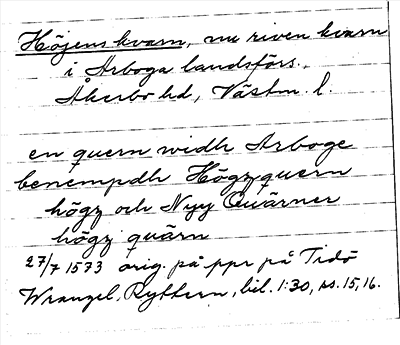 Höjens kvarn, nu riven kvarn
i Arboga landsförs.,
Åkerbo hd, Västm. l.
en quern widh Arboge
benempdh Högzquern
högz och Nyy Quärner
högz quärn
27/7 1573 orig. på ppr på Tidö
Wrangel, Ryttern, bil. 1:30, ss. 15, 16.